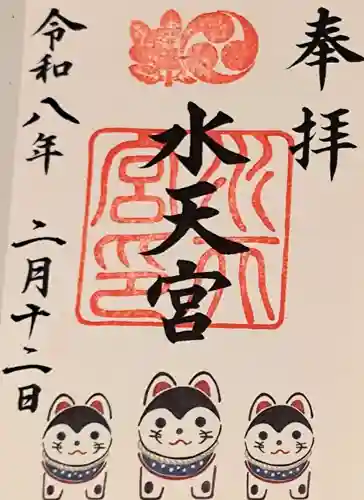 奉拝
水天宮
令和八年 二月十二日
水天宮印